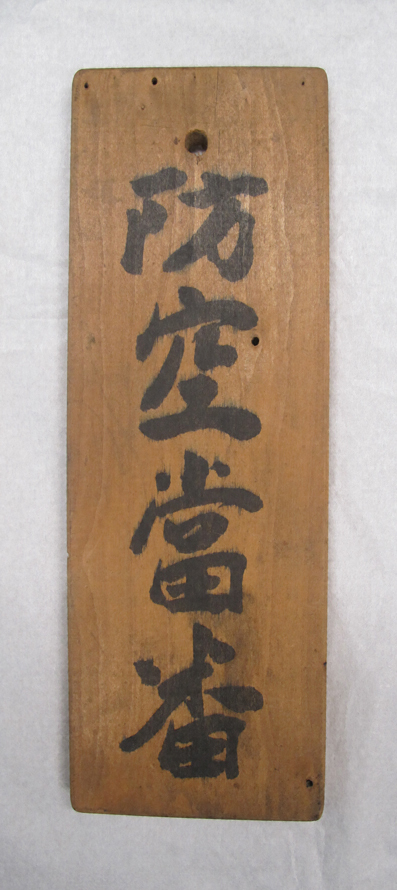 防空當番